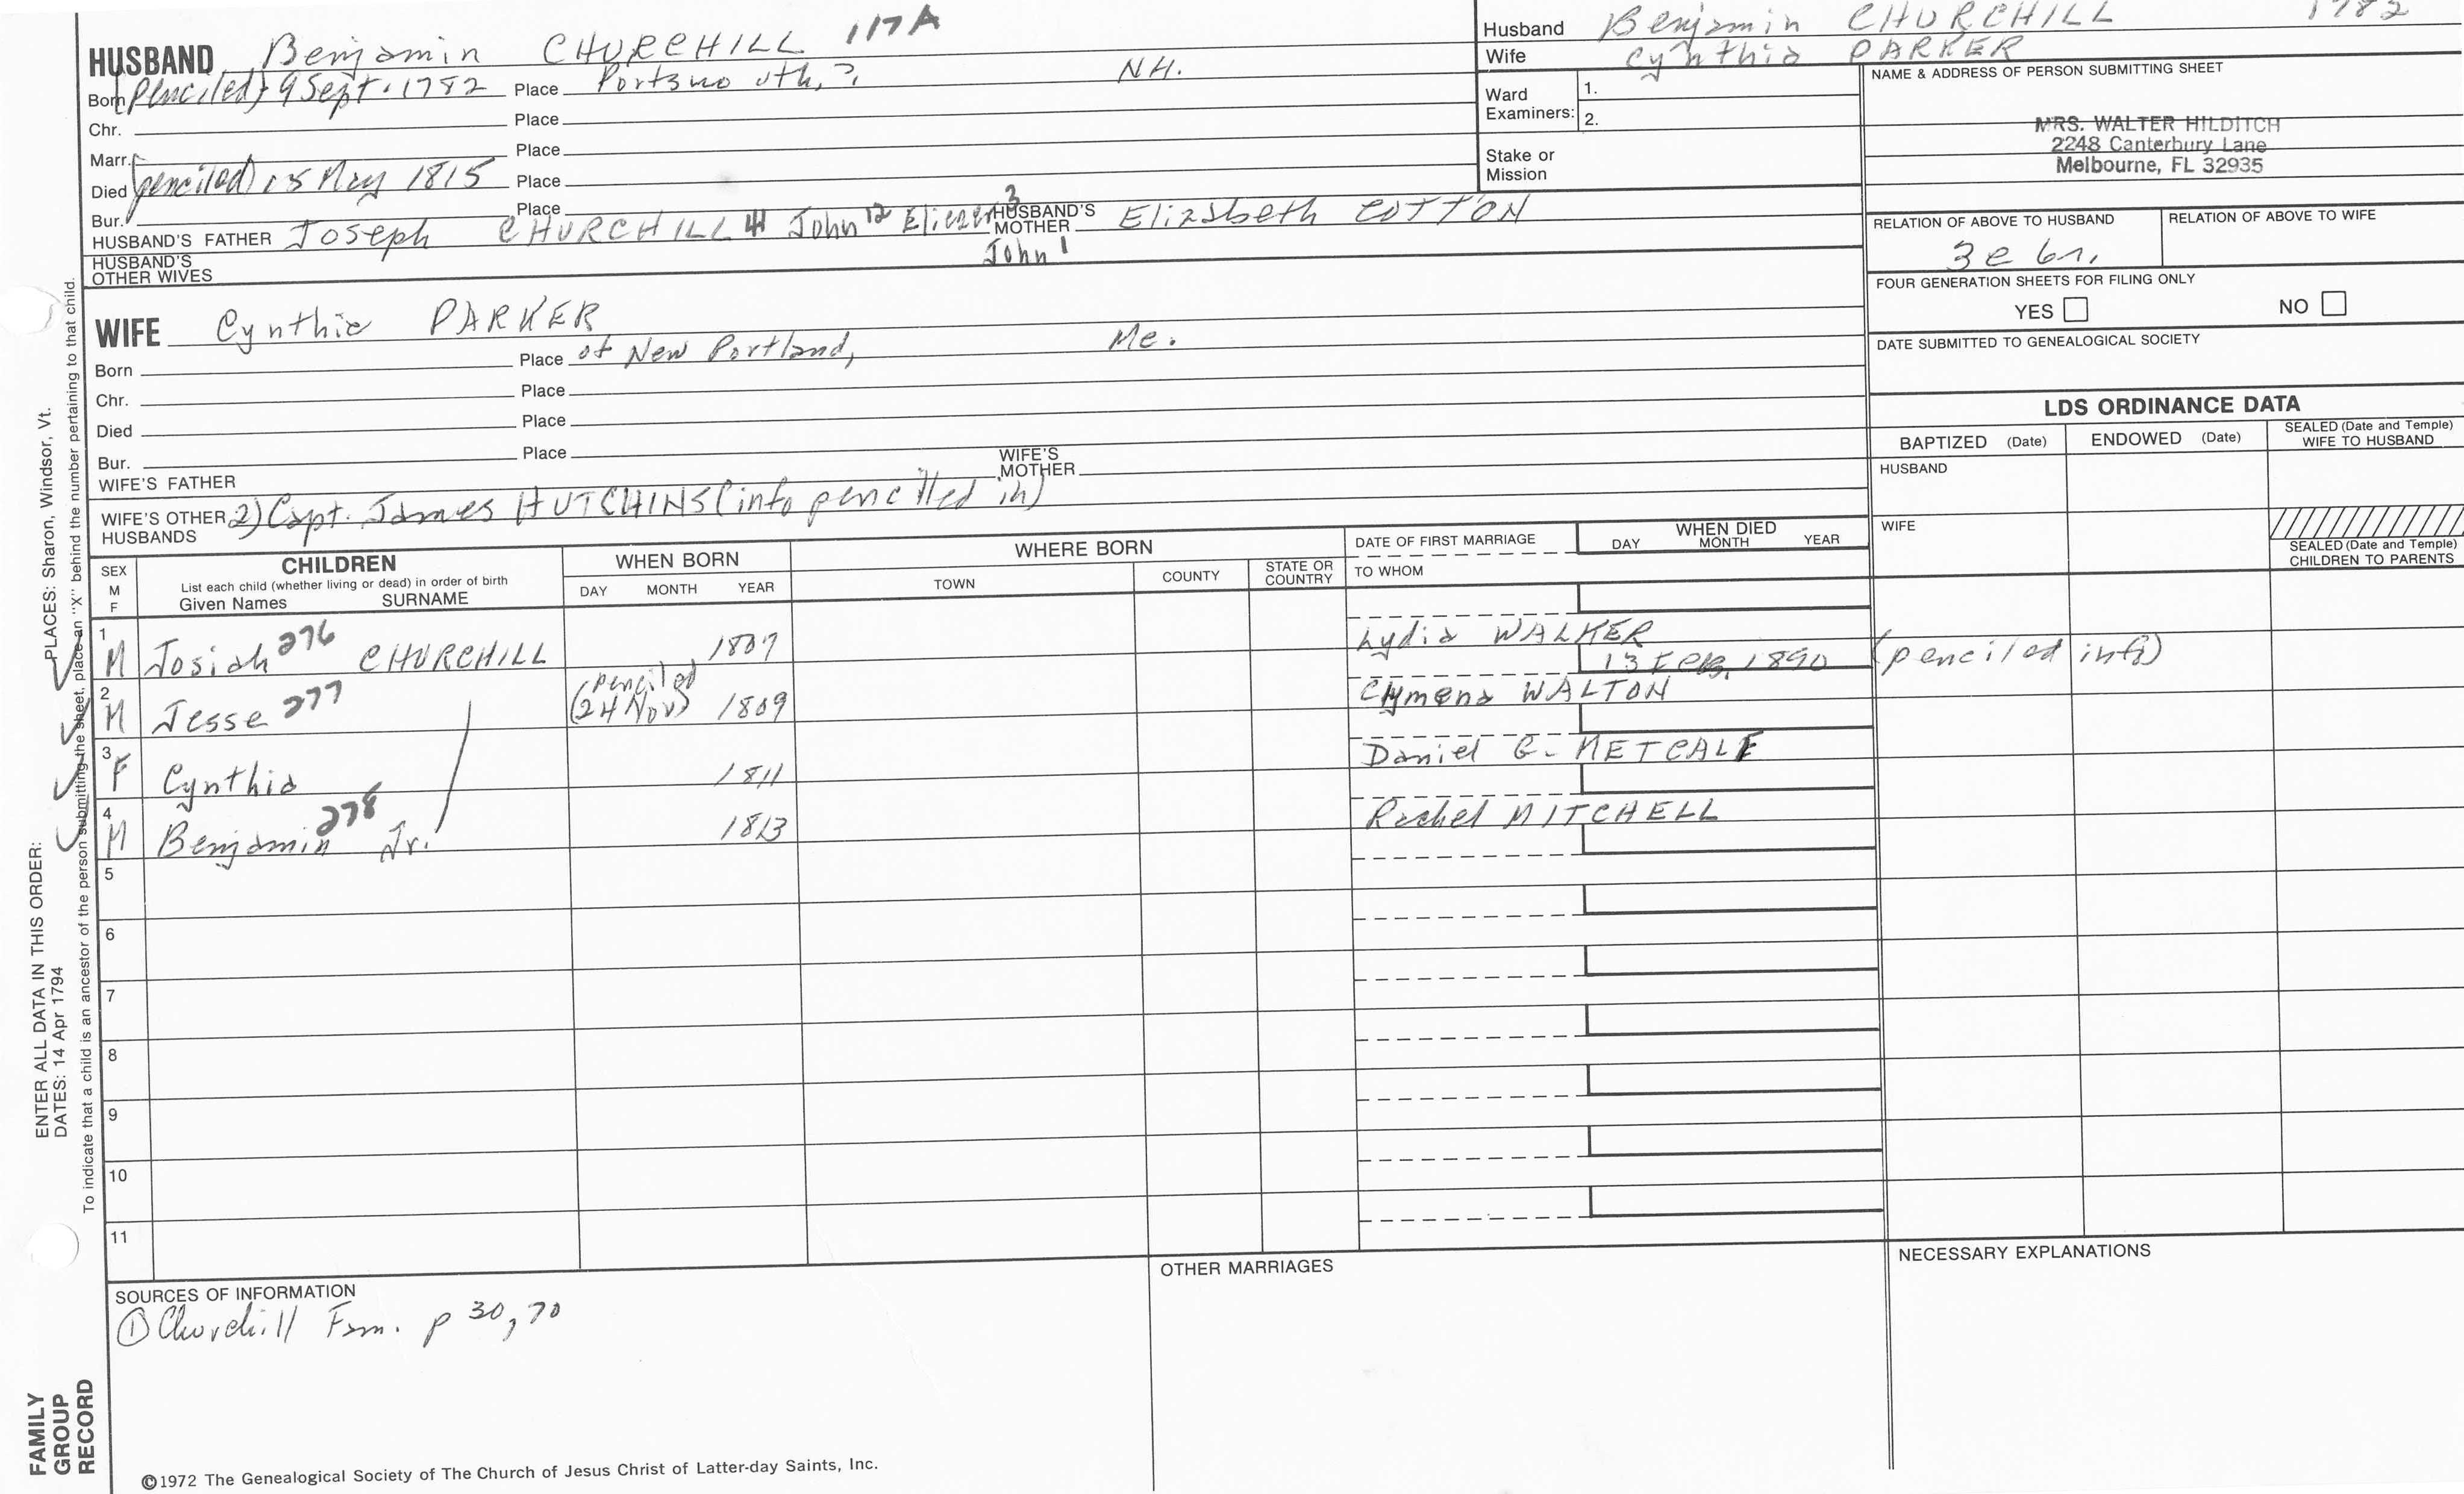 HUSBAND Benjamin CHURCHILL 117A
Born (penciled) 9 Sept. 1782 Place Portsmouth, ?. NH.
Chr. Place
Marr. Place
Died (penciled) 15 May 1815 Place
Bur. Place
HUSBAND'S FATHER Joseph CHURCHILL 4 John 12 Eliezer 3 HUSBAND'S MOTHER Elizabeth COTTON
John 1
HUSBAND'S OTHER WIVES
Husband Benjamin CHURCHILL 1782
Wife Cynthia PARKER
Ward Examiners: 1.
2.
Stake or Mission
NAME & ADDRESS OF PERSON SUBMITTING SHEET
MRS. WALTER HILDITCH
2248 Canterbury Lane
Melbourne, FL 32935
RELATION OF ABOVE TO HUSBAND RELATION OF ABOVE TO WIFE
FOUR GENERATION SHEETS FOR FILING ONLY
YES NO
DATE SUBMITTED TO GENEALOGICAL SOCIETY
WIFE Cynthia PARKER
Born Place of New Portland, Me.
Chr. Place
Died Place
Bur. Place
WIFE'S FATHER WIFE'S MOTHER
WIFE'S OTHER HUSBANDS 2) Capt. James HUTCHINS (info pencilled in)
LDS ORDINANCE DATA
BAPTIZED (Date) ENDOWED (Date) SEALED (Date and Temple) WIFE TO HUSBAND
HUSBAND
WIFE
SEALED (Date and Temple) CHILDREN TO PARENTS
SEX M F
CHILDREN
List each child (whether living or dead) in order of birth
Given Names SURNAME
WHEN BORN
DAY MONTH YEAR
WHERE BORN
TOWN COUNTY STATE OR COUNTRY
DATE OF FIRST MARRIAGE
TO WHOM
WHEN DIED
DAY MONTH YEAR
1 M Josiah 276 CHURCHILL 1807 Lydia WALKER
13 Feb. 1890 (penciled info)
2 M Jesse 277 (penciled 24 Nov) 1809 Clymena WALTON
3 F Cynthia 1811 Daniel G. METCALF
4 M Benjamin 278 Jr. 1813 Rachel MITCHELL
5
6
7
8
9
10
11
SOURCES OF INFORMATION
① Churchill Fam. p 30, 70
OTHER MARRIAGES
NECESSARY EXPLANATIONS
©1972 The Genealogical Society of The Church of Jesus Christ of Latter-day Saints, Inc.
FAMILY GROUP RECORD
ENTER ALL DATA IN THIS ORDER:
DATES: 14 Apr 1794
PLACES: Sharon, Windsor, Vt.
To indicate that a child is an ancestor of the person submitting the sheet, place an "X" behind the number pertaining to that child.